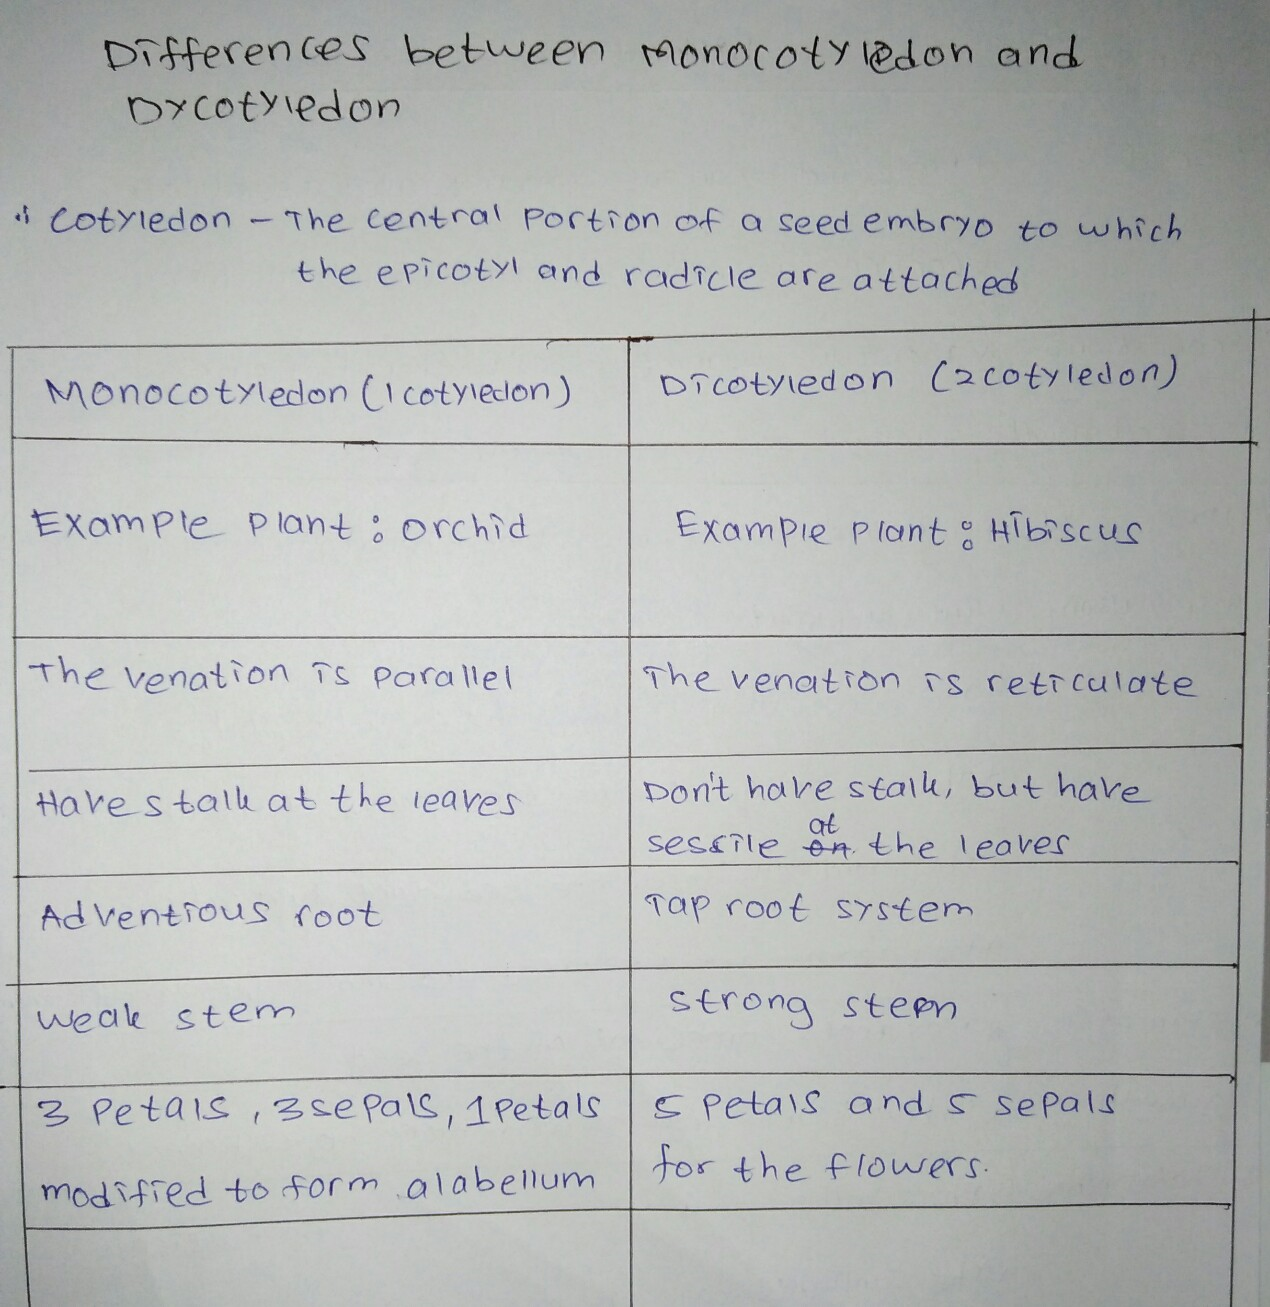 Differences between Monocotyledon and
Dycotyledon
Cotyledon - The central portion of a seed embryo to which
the epicotyl and radicle are attached
Monocotyledon (1 cotyledon)
Dicotyledon (2 cotyledon)
Example plant : orchid
Example plant : Hibiscus
The venation is parallel
The venation is reticulate
Have stalk at the leaves
Don't have stalk, but have
at
sessile on the leaves
Adventious root
Tap root system
weak stem
strong stem
3 Petals , 3 sepals, 1 Petals
modified to form a labellum
5 Petals and 5 sepals
for the flowers.